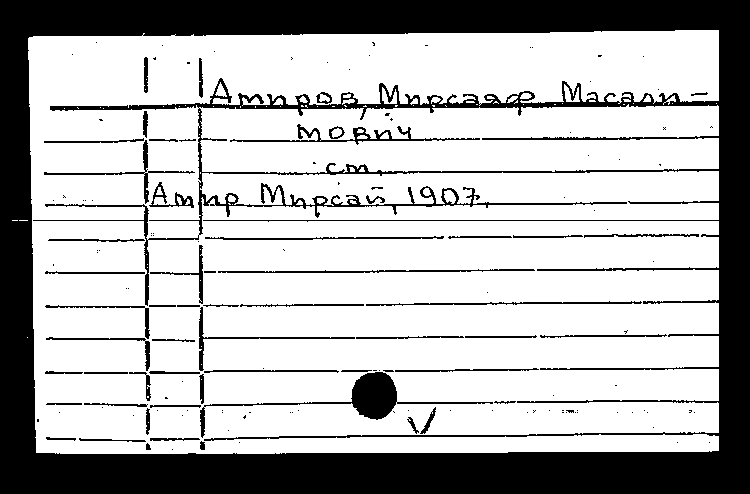 Амиров, Мирсаяф Масали-
мович
см.
Амир Мирсай, 1907.